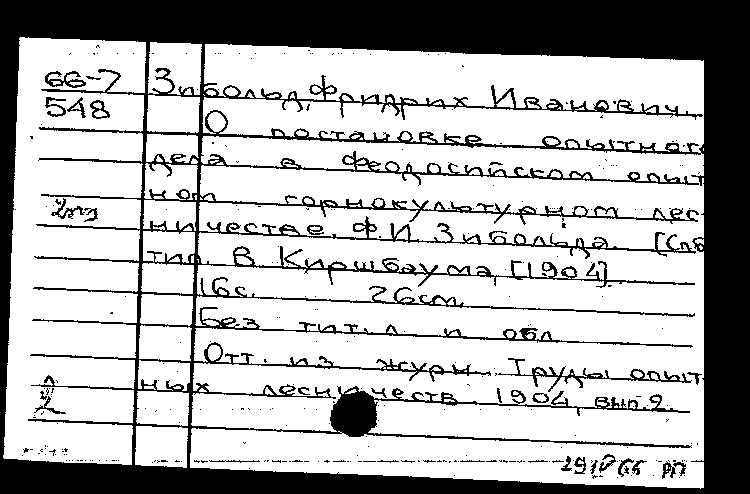 66-7 Зибольд, Фридрих Иванович.
548 О постановке опытного
дела в Феодосийском опыт
ном горнокультурном лес-
ничестве. Ф.И. Зибольда. [Спб
тип. В. Киршбаума, [1904]
16с. 26см.
Без тит. л и обл
Отт. из журн. Труды опыт
ных лесничеств. 1904, вып. 2.
2
29 IV 66